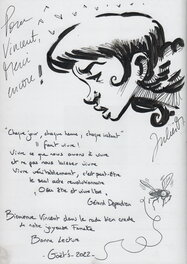 Pour
Vincent,
Merci
encore !
"Chaque jour, chaque heure, chaque instant
Il faut vivre !
Vivre ce que nous avons à vivre
et ne pas nous laisser vivre
Vivre véritablement, c'est peut-être
le seul acte révolutionnaire
Oser être et vivre libre"
Gérard Depardieu
Bienvenue Vincent dans le monde bien
de notre joyeuse Fanette
Bonne Lecture
2022